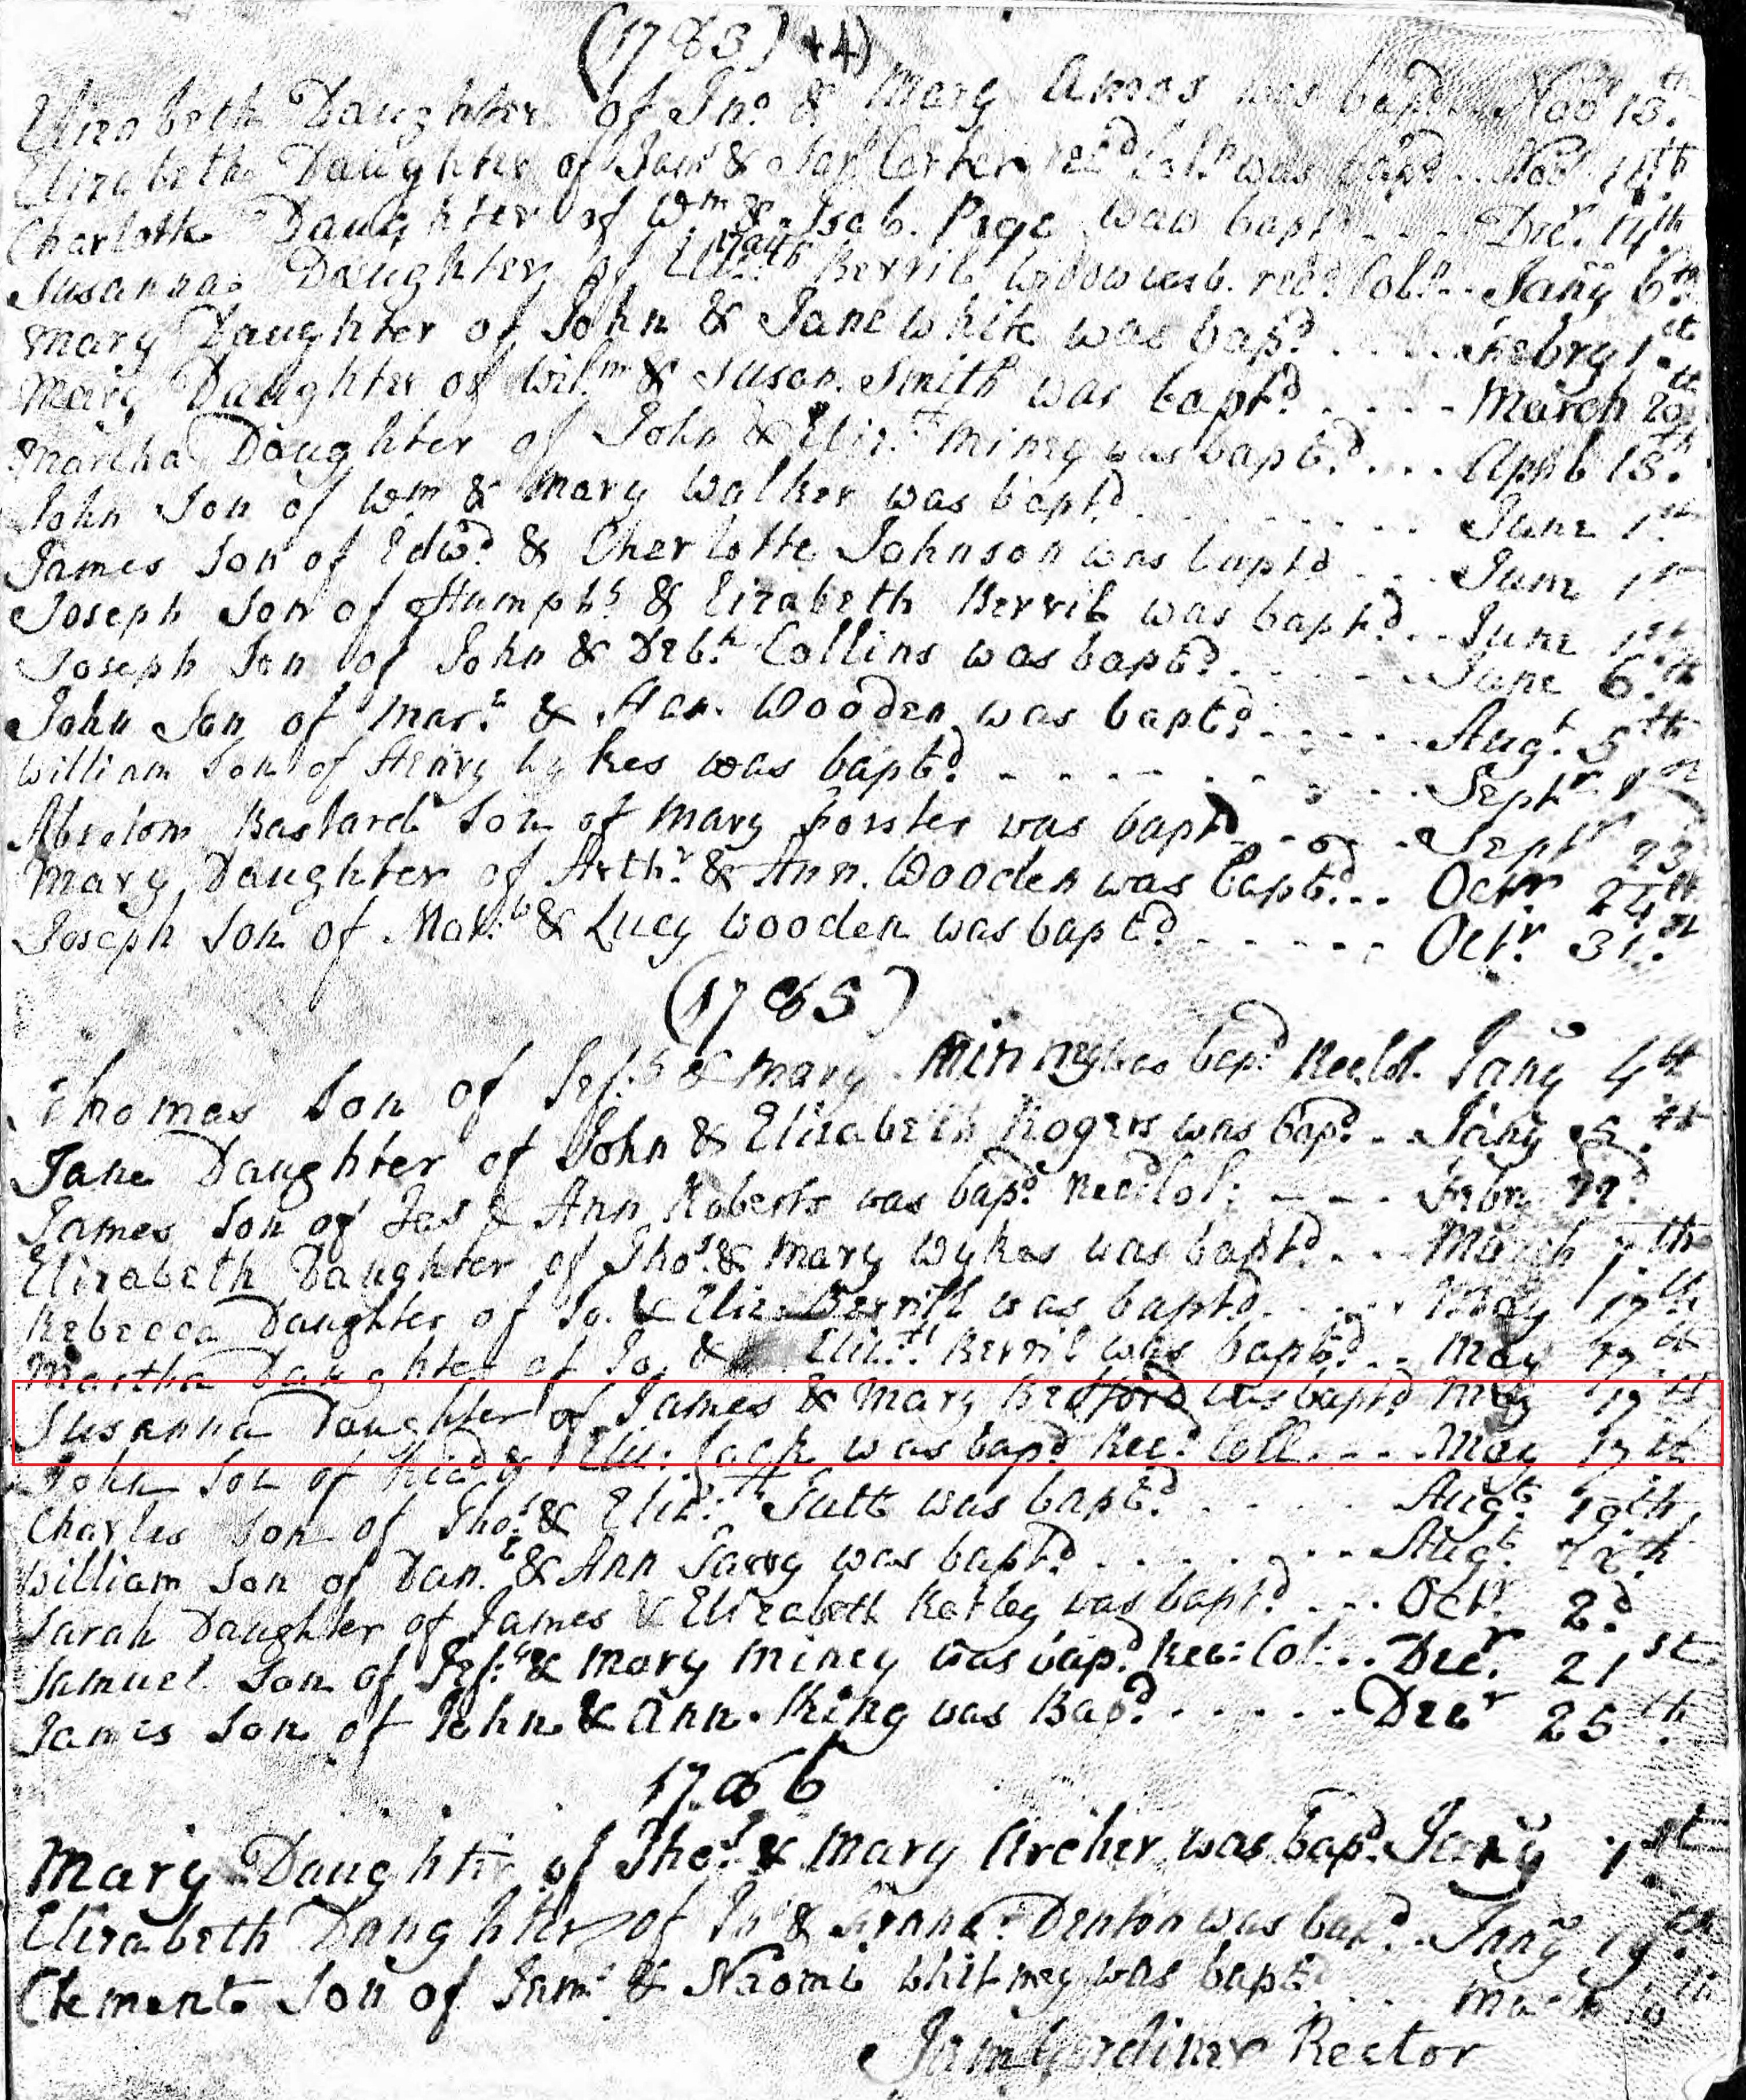 (1783) +4)
Elizabeth Daughter of Jno. & Mary Amos was bapd. Novr 13.th
Elizabeth Daughter of Jams & Sar Carter recd Coln was bapd.. Novr 14th
Charlotte Daughter of Wm & Isab. Page was bapt. - - - Decr. 14th.
Susanna Daughter of Elizath Berril Widow was b. recd Coln.. Jany 6th
Mary Daughter of John & Jane White was bapd. . . . . Febry 1.st
Mary Daughter of Willm & Susan. Smith was baptd. . . . - March 29th
Martha Daughter of John & Eliz.th Miney was baptd. . . . April 13.th
John Son of Wm & Mary Walker was baptd. . . . . . . . . June 1st
James Son of Edwd. & Charlotte Johnson was baptd . . . June 1st
Joseph Son of Humphs & Elizabeth Berril was baptd. . . June 1st
Joseph Son of John & Deb.h Collins was baptd. . . . . . June 6.th
John Son of Mar.k & Han. Wooden was baptd. . . . . . Augt. 5th
William Son of Henry Wykes was baptd. - . - . - . . . . Septr
Absolom Bastard Son of Mary Forster was baptd. . . . . Septr 23
Mary Daughter of Arthr. & Ann. Wooden was baptd. . . Octr 24th
Joseph Son of & Lucy Wooden was baptd. - - - - - - Octr. 31.st
(1785)
Thomas Son of Jef.s & Mary Minney was bapd Recd. Jany 4th
Jane Daughter of John & Elizabeth Rogers was bapd. . . Jany 5.th
James Son of Jas & Ann Roberts was bapd. Recd Col: - - . Febry 22d
Elizabeth Daughter of Thos. & Mary Wykes was baptd. . . March 7th
Rebecca Daughter of Jo. & Eliz. Berrill was baptd. . . . . May 17th
Martha Daughter of Jo. & Eliz.th Berril was baptd. . . May 17th
Susanna Daughter of James & Mary Bedford was baptd May 17th
John Son of Richd & Eliz: Jack was bapd Rec.d Coll. . - - May 17th
Charles Son of Thos. & Eliz.th Tutt was baptd. . . . . Augt 10th
William Son of Dan.l & Ann was baptd. . . . . . . . . Augt. 28th
Sarah Daughter of James & Elizabeth Katley was baptd. . . . Octr 2d.
Samuel Son of Jef.y & Mary Miney was bapd. Rec: Col: . . Decr. 21st
James Son of John & Ann. King was Bapd. . . . . . . Decr 25th.
1786
Mary Daughter of Thos. & Mary Archer was bapd. Jany 1st
Elizabeth Daughter of Jno & Denton was bapd. . Jany 19.th
Clement Son of Jams & Naomi Whitmey was baptd . . . March 10th
Jam Gordiner Rector